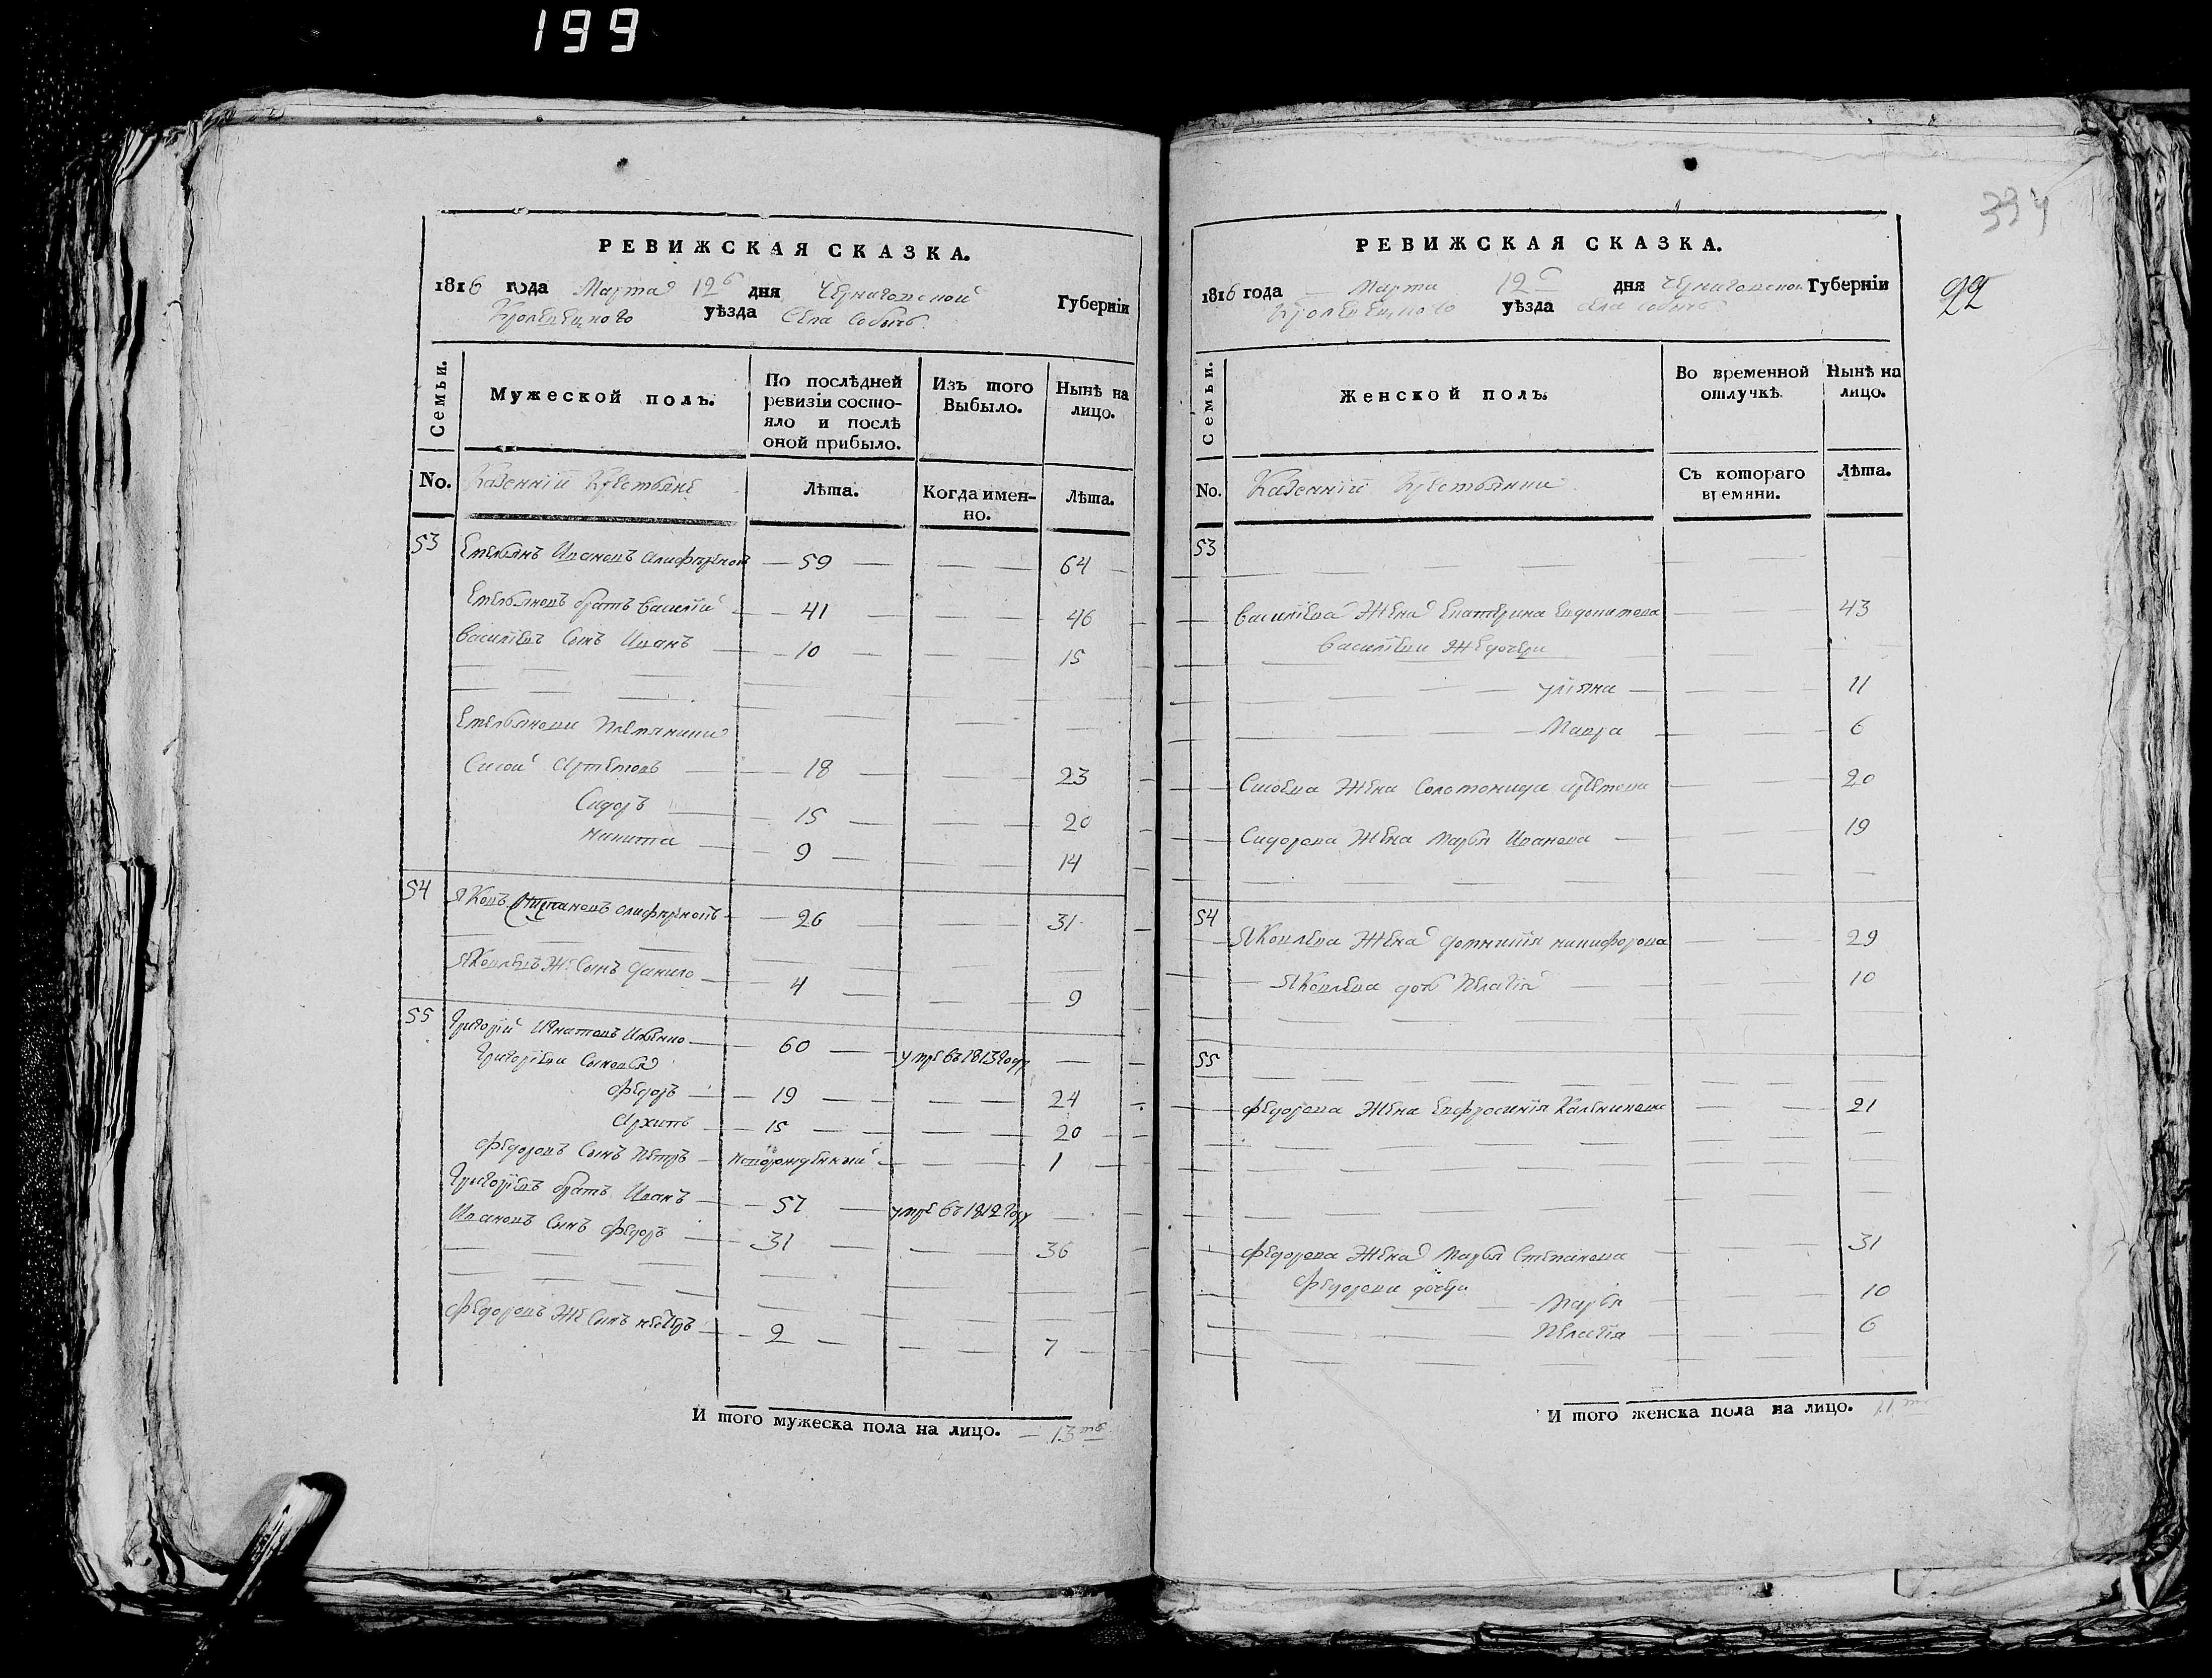 199
РЕВИЖСКАЯ СКАЗКА.
1816 года Марта 12 дня Черниговской Губерніи
Кролевецкого уѣзда Села Собычь
Семьи.
Мужеской полъ.
По послѣдней ревизіи состо-
яло и послѣ
оной прибыло.
Изъ того
Выбыло.
Нынѣ на
лицо.
No.
Казенніи Крестьяне
Лѣта.
Когда имен-
но.
Лѣта.
53 Емельянъ Ивановъ — 59 — 64
Емельяновъ братъ Василій — 41 — 46
Василіевъ Сынъ Иванъ — 10 — 15
Емельянови Племяники
Сисой Артемовъ — 18 — 23
Сидоръ — 15 — 20
Никита — 9 — 14
54 Яковъ — 26 — 31
Яковлевъ Же Сынъ Данило — 4 — 9
55 Григорій Игнатовъ — 60 — умре въ 1813 году —
Григоріеви Сыновья
Федоръ — 19 — 24
Архипъ — 15 — 20
Федоровъ Сынъ Петръ — новорожденный — 1
Григоріевъ братъ Иванъ — 57 — умре въ 1812 году —
Ивановъ Сынъ Федоръ — 31 — 36
Федоровъ Же Сынъ Несторъ — 2 — 7
И того мужеска пола на лицо. — 13ть
334
22
РЕВИЖСКАЯ СКАЗКА.
1816 года Марта 12 дня Черниговской Губерніи
Кролевецкого уѣзда села Собычь
Семьи.
Женской полъ.
Во временной
отлучкѣ.
Нынѣ на
лицо.
No.
Казенніи Крестьянки
Съ котораго
времяни.
Лѣта.
53
Василіева Жена Екатерина — 43
Василіеви Же дочери
Уліяна — 11
Мавра — 6
Сисоева Жена Соломонида Артемова — 20
Сидорова Жена Марья Иванова — 19
54
Яковлева Жена Домникія Никифорова — 29
Яковлева дочь Пелагія — 10
55
Федорова Жена Евфросинія Каленикова — 21
Федорова Жена Марья Степанова — 31
Федорови дочери
Марья — 10
Пелагія — 6
И того женска пола на лицо. 11